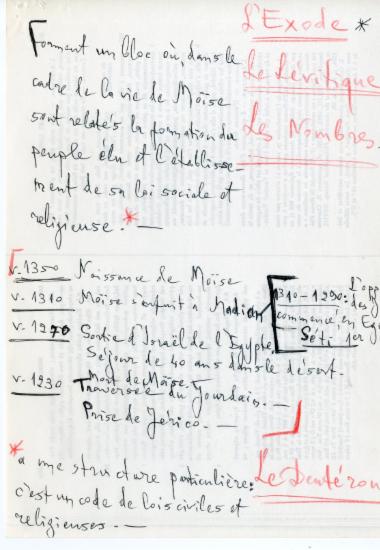 L'Exode *
Le Lévitique
Les Nombres.
Forment un bloc où, dans le
cadre de la vie de Moïse
sont relatés la formation du
peuple élu et l'établisse-
ment de sa loi sociale et
religieuse. * —
v. 1350 Naissance de Moïse
v. 1310 Moïse s'enfuit à Madian
1310-1290: des
commence en
Séti 1er
v. 1270 Sortie d'Israël de l'Egypte.
Séjour de 40 ans dans le désert.
Mort de Moïse.
v. 1230 Traversée du Jourdain. —
Prise de Jérico. —
* a une structure particulière:
c'est un code de lois civiles et
religieuses. —
Le Deutéron